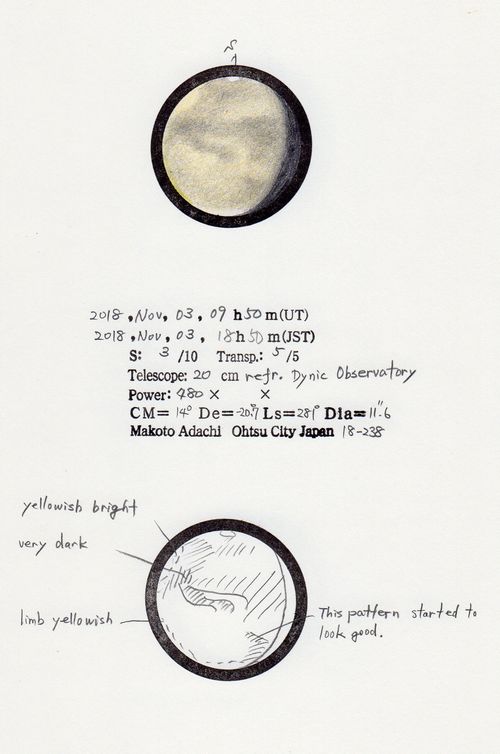 S
2018, Nov, 03, 09 h 50 m (UT)
2018, Nov, 03, 18h 50 m (JST)
S: 3 /10 Transp.: 5 /5
Telescope: 20 cm refr. Dynic Observatory
Power: 480 × ×
CM= 14° De= -20.°7 Ls= 281° Dia= 11."6
Makoto Adachi Ohtsu City Japan 18-238
yellowish bright
very dark
limb yellowish
This pattern started to
look good.